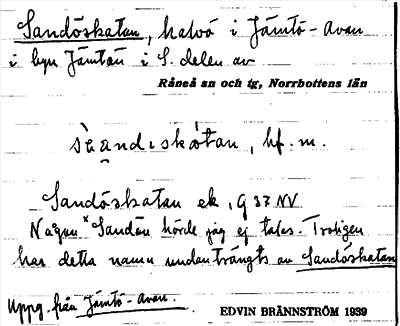 Sandöskatan, halvö i Jämtö-Avan
i byn Jämtön i S. delen av
Råneå sn och tg, Norrbottens län
sandiskatan, bf. m.
Sandöskatan ek, G 37 NV
Någon *Sandön hörde jag ej talas. Troligen
har detta namn undanträngts av Sandöskatan
Uppg. från Jämtö-Avan.
EDVIN BRÄNNSTRÖM 1939